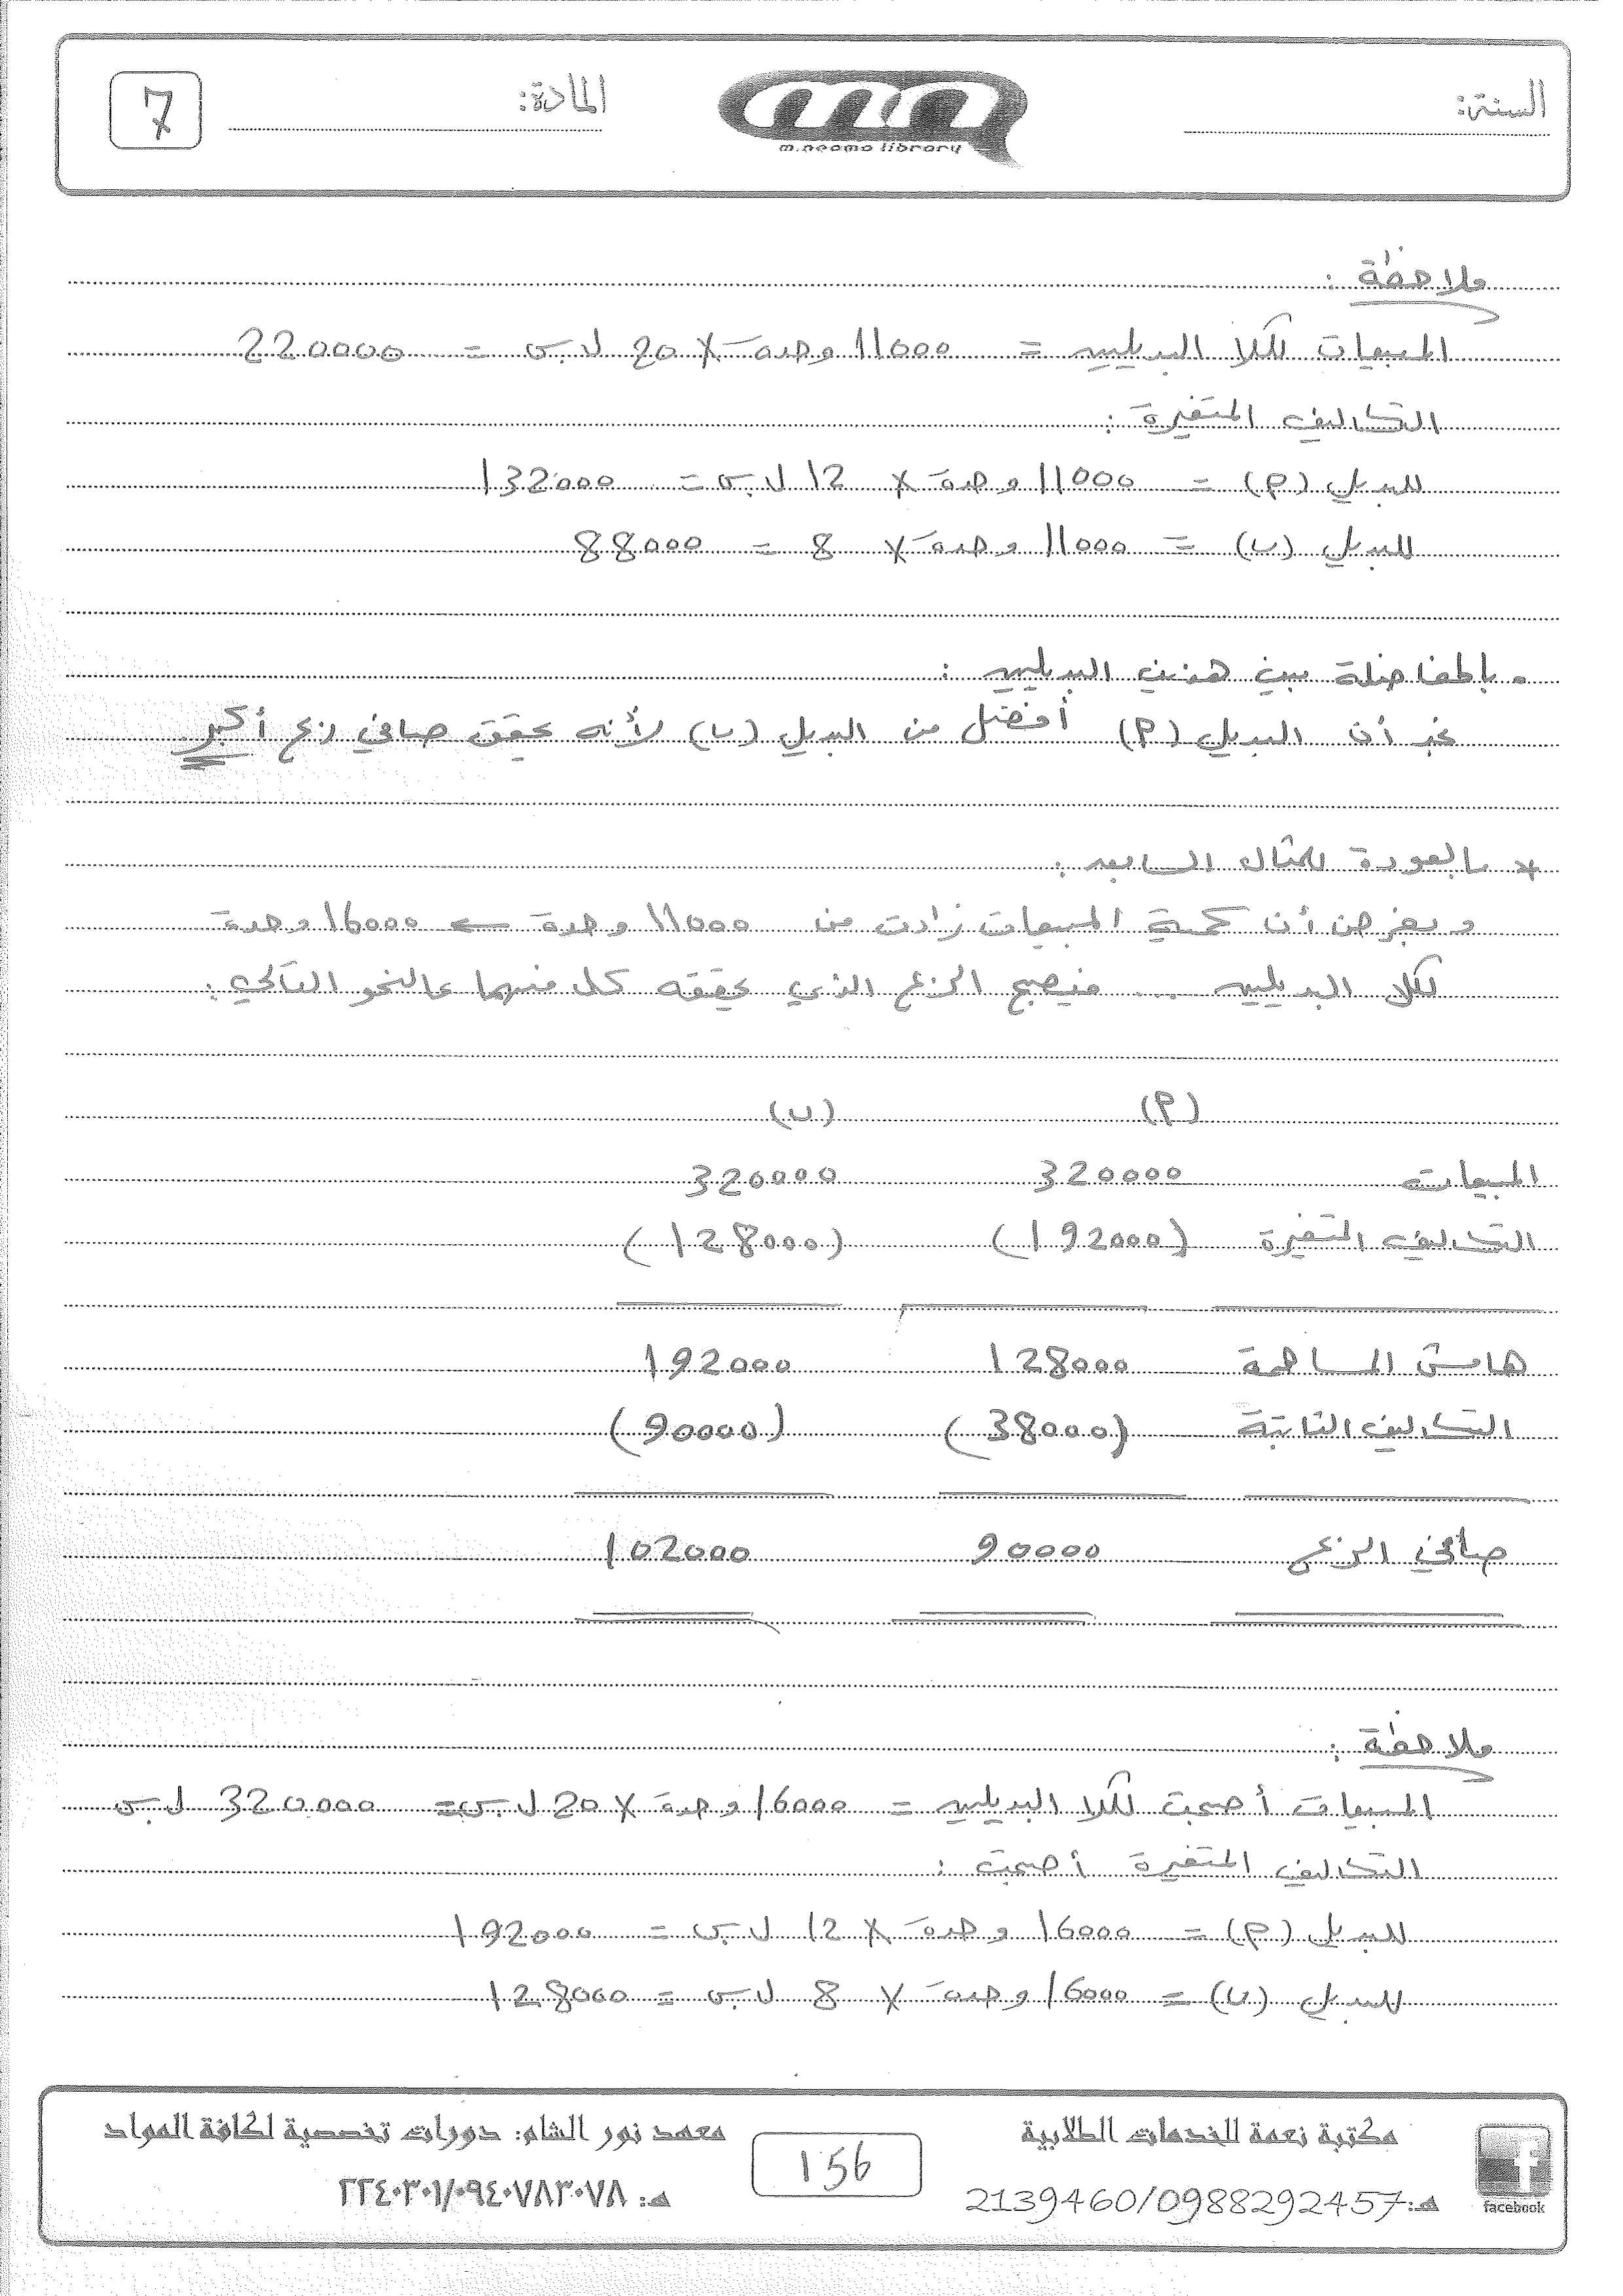 السنة:
m.neama library
المادة:
7
ملاحظة :
المبيعات لكلا البديلين = 11000 وحدة × 20 ل.س = 220000
التكاليف المتغيرة :
للبديل (م) = 11000 وحدة × 12 ل.س = 132000
للبديل (ب) = 11000 وحدة × 8 = 88000
. بالمفاضلة بين هذين البديلين :
نجد أن البديل (م) أفضل من البديل (ب) لأنه يحقق صافي ربح أكبر
* بالعودة للمثال السابق :
وبفرض أن كمية المبيعات زادت من 11000 وحدة ← 16000 وحدة
لكلا البديلين ... فيصبح الربح الذي يحققه كل منهما عالنحو التالي :
(م) (ب)
المبيعات 320000 320000
التكاليف المتغيرة (192000) (128000)
هامش المساهمة 128000 192000
التكاليف الثابتة (38000) (90000)
صافي الربح 90000 102000
ملاحظة :
المبيعات أصبحت لكلا البديلين = 16000 وحدة × 20 ل.س = 320000 ل.س
التكاليف المتغيرة أصبحت :
للبديل (م) = 16000 وحدة × 12 ل.س = 192000
للبديل (ب) = 16000 وحدة × 8 ل.س = 128000
مكتبة نعمة للخدمات الطلابية
هـ: 2139460/0988292457
facebook
156
معهد نور الشام: دورات تخصصية لكافة المواد
هـ: ٢٢٤٠٣٠١/٠٩٤٠٧٨٣٠٧٨